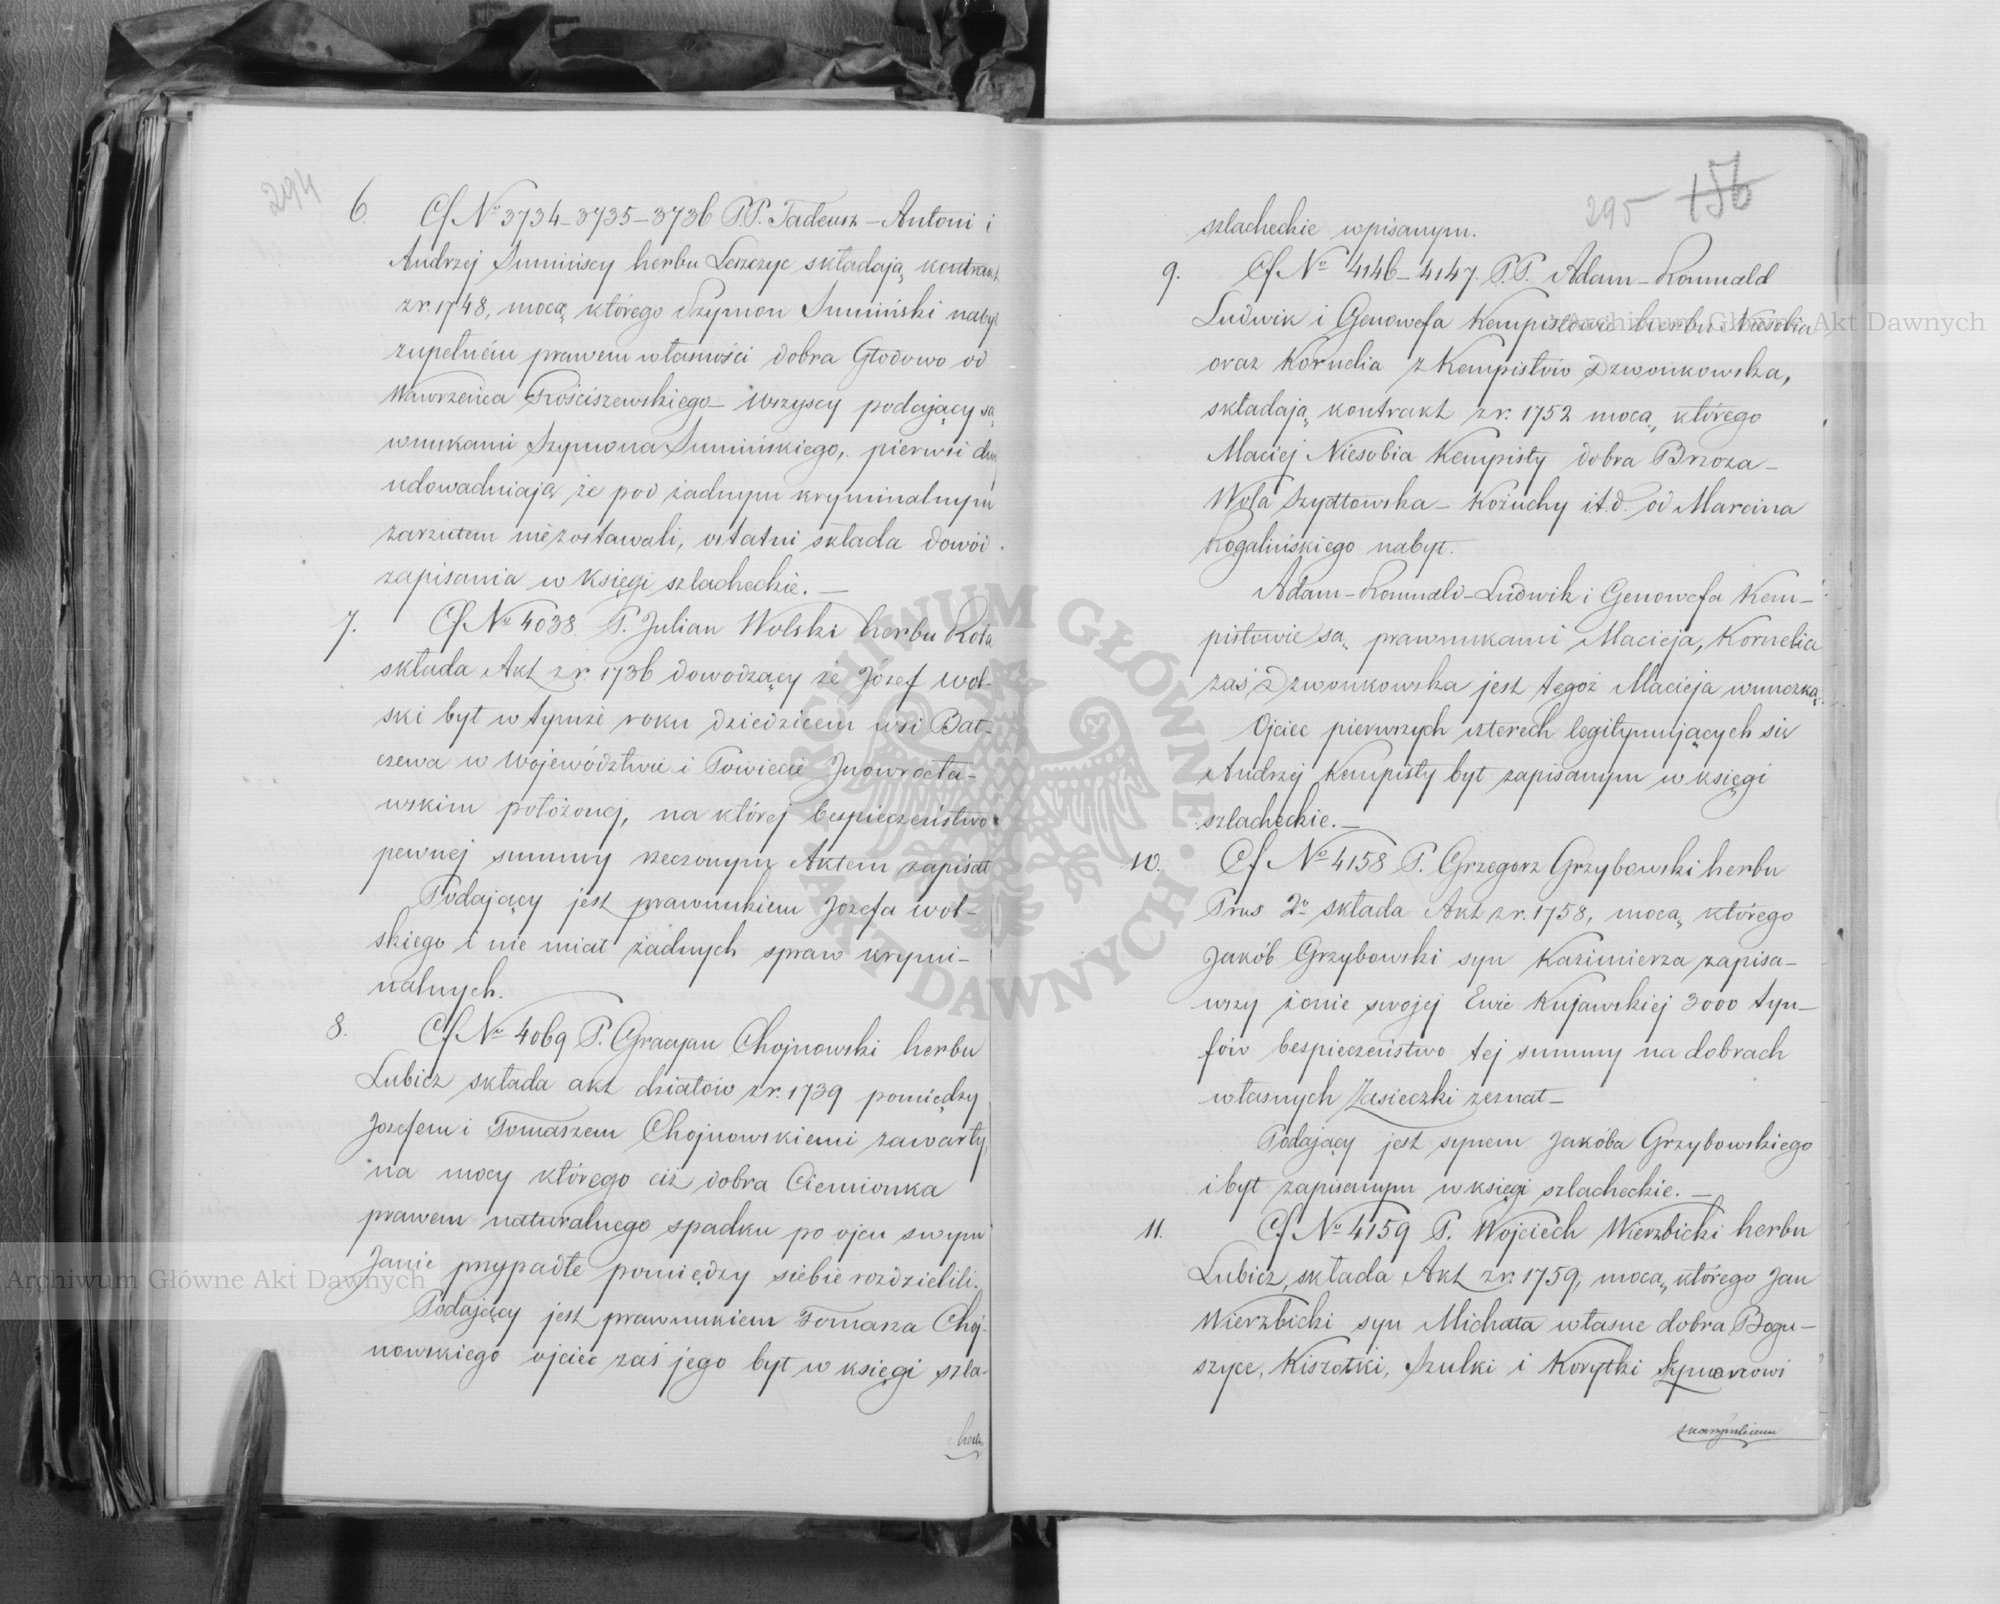 294
6. Cf No 3734–3735–3736 P.P. Tadeusz – Antoni i
Andrzej Sumińscy herbu Leszczyc składają kontrakt
z r. 1748, mocą którego Szymon Sumiński nabył
zupełném prawem własności dobra Głodowo od
Wawrzeńca Trościszewskiego – wszyscy podający są
wnukami Szymona Sumińskiego, pierwsi dwaj
udowadniają że pod żadnym kryminalnym
zarzutem niezostawali, ostatni składa dowód
zapisania w Księgi szlacheckie. —
7. Cf No 4038. P. Julian Wolski herbu Rola
składa Akt z r. 1736 dowodzący że Józef Wol-
ski był w tymże roku dziedzicem wsi Bat-
czewa w Województwie i Powiecie Inowrocła-
wskim położonej, na której bespieczeństwo
pewnej summy rzeczonym Aktem zapisał
Podający jest prawnukiem Józefa Wol-
skiego i nie miał żadnych spraw krymi-
nalnych.
8. Cf No 4069 P. Gracyan Chojnowski herbu
Lubicz składa akt działów z r. 1739 pomiędzy
Józefem i Tomaszem Chojnowskiemi zawarty,
na mocy którego ciż dobra Ciemionka
prawem naturalnego spadku po ojcu swym
Janie przypadłe pomiędzy siebie rozdzielili.
Podający jest prawnukiem Tomasza Choj-
nowskiego ojciec zaś jego był w księgi szla-
295 156
szlacheckie wpisanym.
9. Cf No 4146–4147. P.P. Adam – Romuald
Ludwik i Genowefa Kempistowie herbu Niesobia
oraz Kornelia z Kempistów Dzwonkowska,
składają kontrakt z r. 1752 mocą, którego
Maciej Niesobia Kempisty dobra Brzoza –
Wola Szydłowska – Kożuchy i t. d. od Marcina
Rogalińskiego nabył.
Adam – Romuald – Ludwik i Genowefa Kem-
pistowie są prawnukami Macieja, Kornelia
zaś Dzwonkowska jest tegoż Macieja wnuczką.
Ojciec pierwszych czterech legitymujących się
Andrzej Kempisty był zapisanym w księgi
szlacheckie. —
10. Cf No 4158 P. Grzegorz Grzybowski herbu
Prus 2o składa Akt z r. 1758, mocą którego
Jakób Grzybowski syn Kazimierza zapisa-
wszy żonie swojej Ewie Kujawskiej 3000 tyn-
fów bespieczeństwo tej summy na dobrach
własnych Zasieczki zeznał –
Podający jest synem Jakóba Grzybowskiego
i był zapisanym w księgi szlacheckie. —
11. Cf No 4159 P. Wojciech Wierzbicki herbu
Lubicz, składa Akt z r. 1759, mocą którego Jan
Wierzbicki syn Michała własne dobra Bogu-
szyce, Kiszotki, Szulki i Korytki Szymonowi
Skarzyńskiemu
Archiwum Główne Akt Dawnych
Archiwum Główne Akt Dawnych
ARCHIWUM GŁÓWNE AKT DAWNYCH